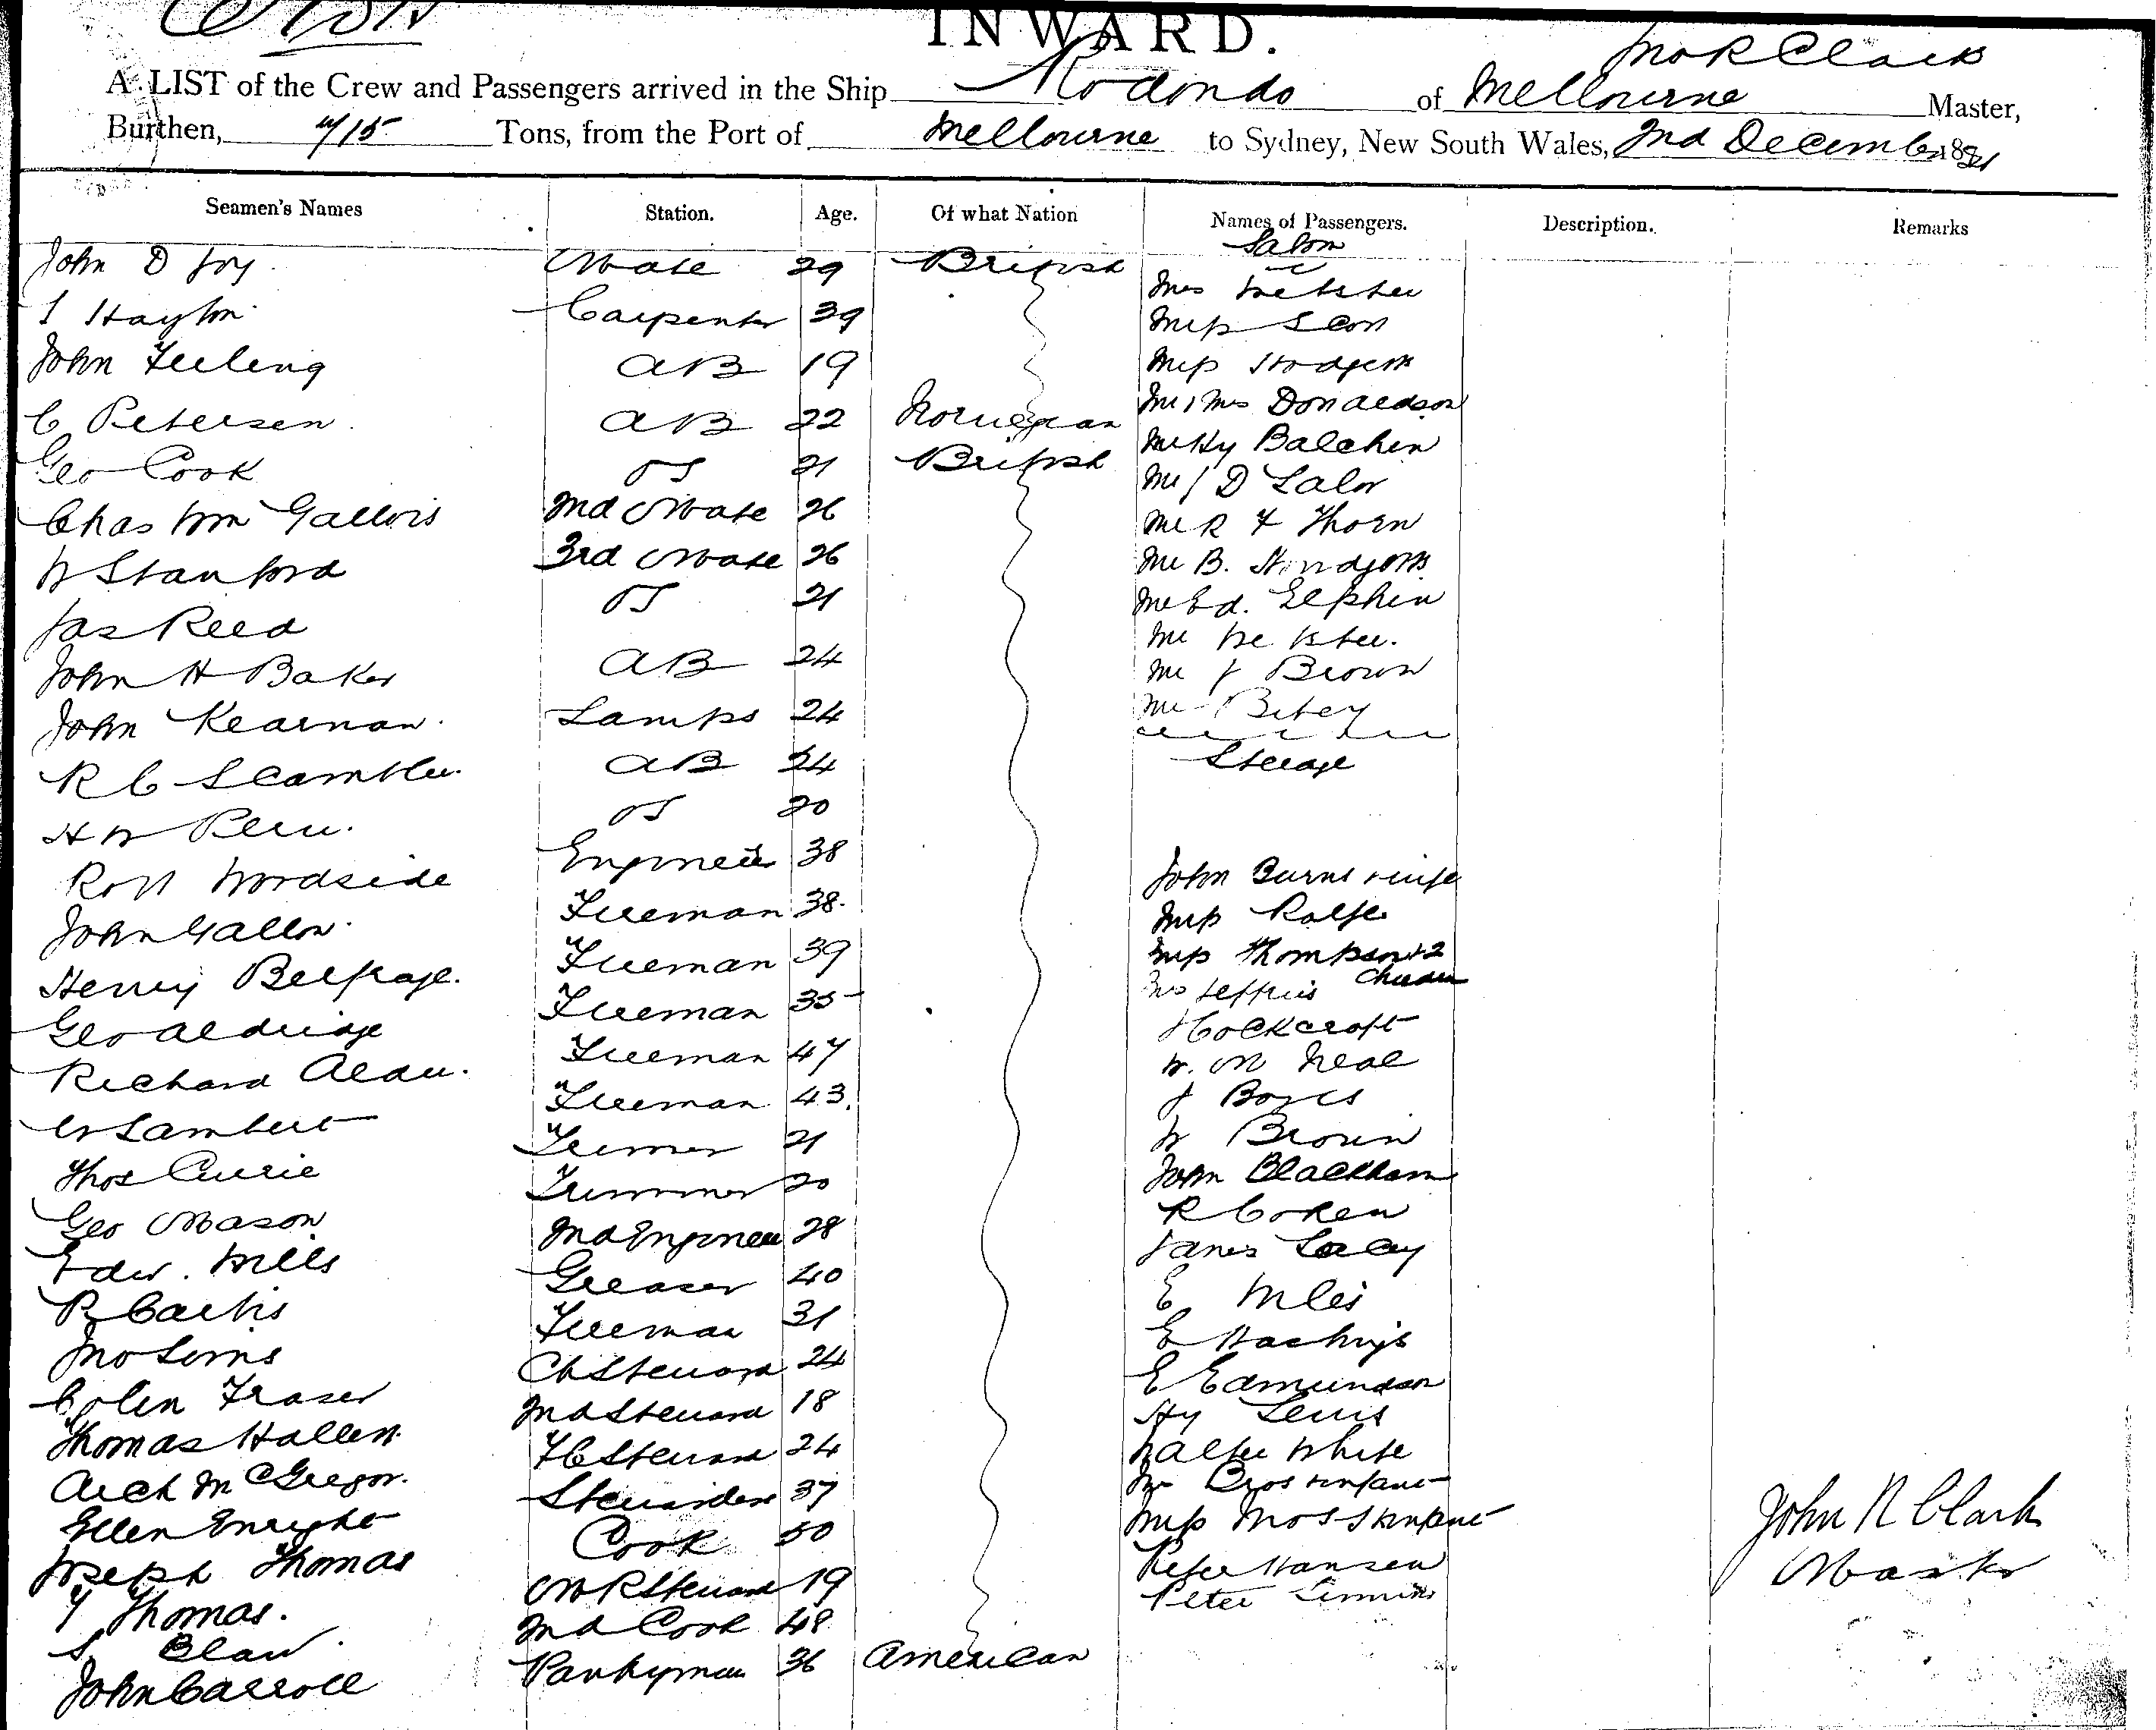 INWARD.
Jno R Clark
A LIST of the Crew and Passengers arrived in the Ship Rodondo of Melbourne Master,
Burthen, 715 Tons, from the Port of Melbourne to Sydney, New South Wales, 2nd December 18
Seamen's Names Station. Age. Of what Nation Names of Passengers. Description. Remarks
Salon
John D Joy Mate 29 British
Mrs Webster
Hayton Carpenter 39
Miss Scott
John Feeling AB 19
Miss Hodgson
C Petersen AB 22 Norwegian
Mr & Mrs Donaldson
Geo Cook OS 21 British
Mr Hy Balchin
Chas Wm Gallois 2nd Mate 26
Mr J D Lalor
W Stanford 3rd Mate 26
Mr R F Thorn
Jas Reed OS 21
Mr B.
Mr Ed. Elphin
John H Baker AB 24
Mr Webster.
Mr J Brown
John Kearnan Lamps 24
Mr
R C Scambler AB 24
Steerage
H W OS 20
Robt Woodside Engineer 38
John Burns & wife
John Fireman 38
Miss Rolfe
Henry Belfrage Fireman 39
Mrs Thompson & 2 Children
Geo Aldridge Fireman 35
Mrs Jeffries
Holkcroft
Richard Fireman 47
W. M Neal
W Lambert Fireman 43
J
Thos Currie Trimmer 21
W Brown
John Blackham
Geo Mason Trimmer 20
R Cohen
Edw. Mills 2nd Engineer 28
James Lacy
P Curtis Greaser 40
E Miles
Jno Fireman 31
E Hastings
Colin Fraser Ch Steward 24
E Edmundson
Thomas Hallett 2nd Steward 18
Hy Lewis
Arch McGregor FC Steward 24
Walter White
Mrs & infant
Ellen Enright Stewardess 37
Mrs Moss & infant
Joseph Thomas Cook 50
Peter Hansen
Y Thomas. MR Steward 19
Peter
S Blair 2nd Cook 48
John Carroll Pantryman 36 American
John R Clark
Master